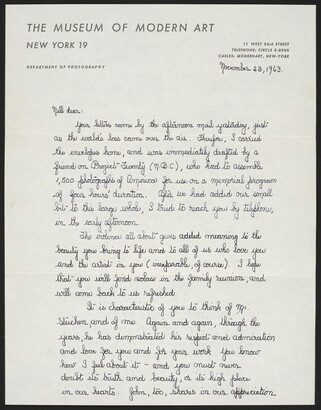 THE MUSEUM OF MODERN ART
NEW YORK 19
11 WEST 53rd STREET
TELEPHONE: CIRCLE 5-8900
CABLES: MODERNART, NEW-YORK
DEPARTMENT OF PHOTOGRAPHY
November 23, 1963.
Nell dear:
Your letters came by the afternoon mail yesterday, just
as the world's loss came over the air. Therefore, I carried
the envelopes home, and was immediately drafted by a
friend on Project Twenty (N.B.C), who had to assemble
1,500 photographs of America for use on a memorial program
of four hours' duration. After we had added our small
bit to this large whole, I tried to reach you by telephone,
in the early afternoon.
The violence all about gives added meaning to the
beauty you bring to life and to all of us who love you
and the artist in you (inseparable, of course). I hope
that you will find solace in the family reunion, and
will come back to us refreshed.
It is characteristic of you to think of Mr.
Steichen and of me. Again and again, through the
years, he has demonstrated his respect and admiration
and love for you and for your work. You know
how I feel about it — and you must never
doubt its truth and beauty, or its high place
in our hearts. John, too, shares in our appreciation.